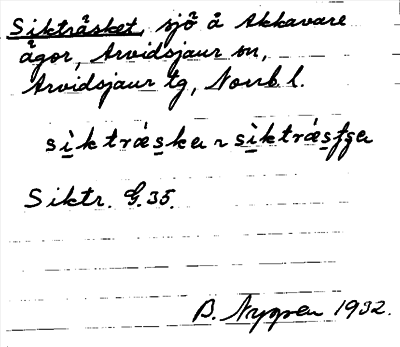 Sikträsket, sjö å Akkavare
ägor, Arvidsjaur sn,
Arvidsjaur tg, Norrb. l.
sìktrǽska ~ sìktrǽsṭga
Siktr. G.35.
B. Nygren 1932.